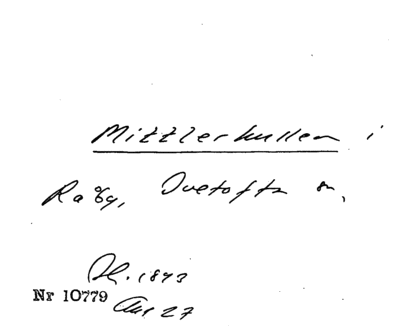 Mittlerkullen i
Raby, Ivetofta sn,
Pl. 1893
Nr 10779
Aug 27